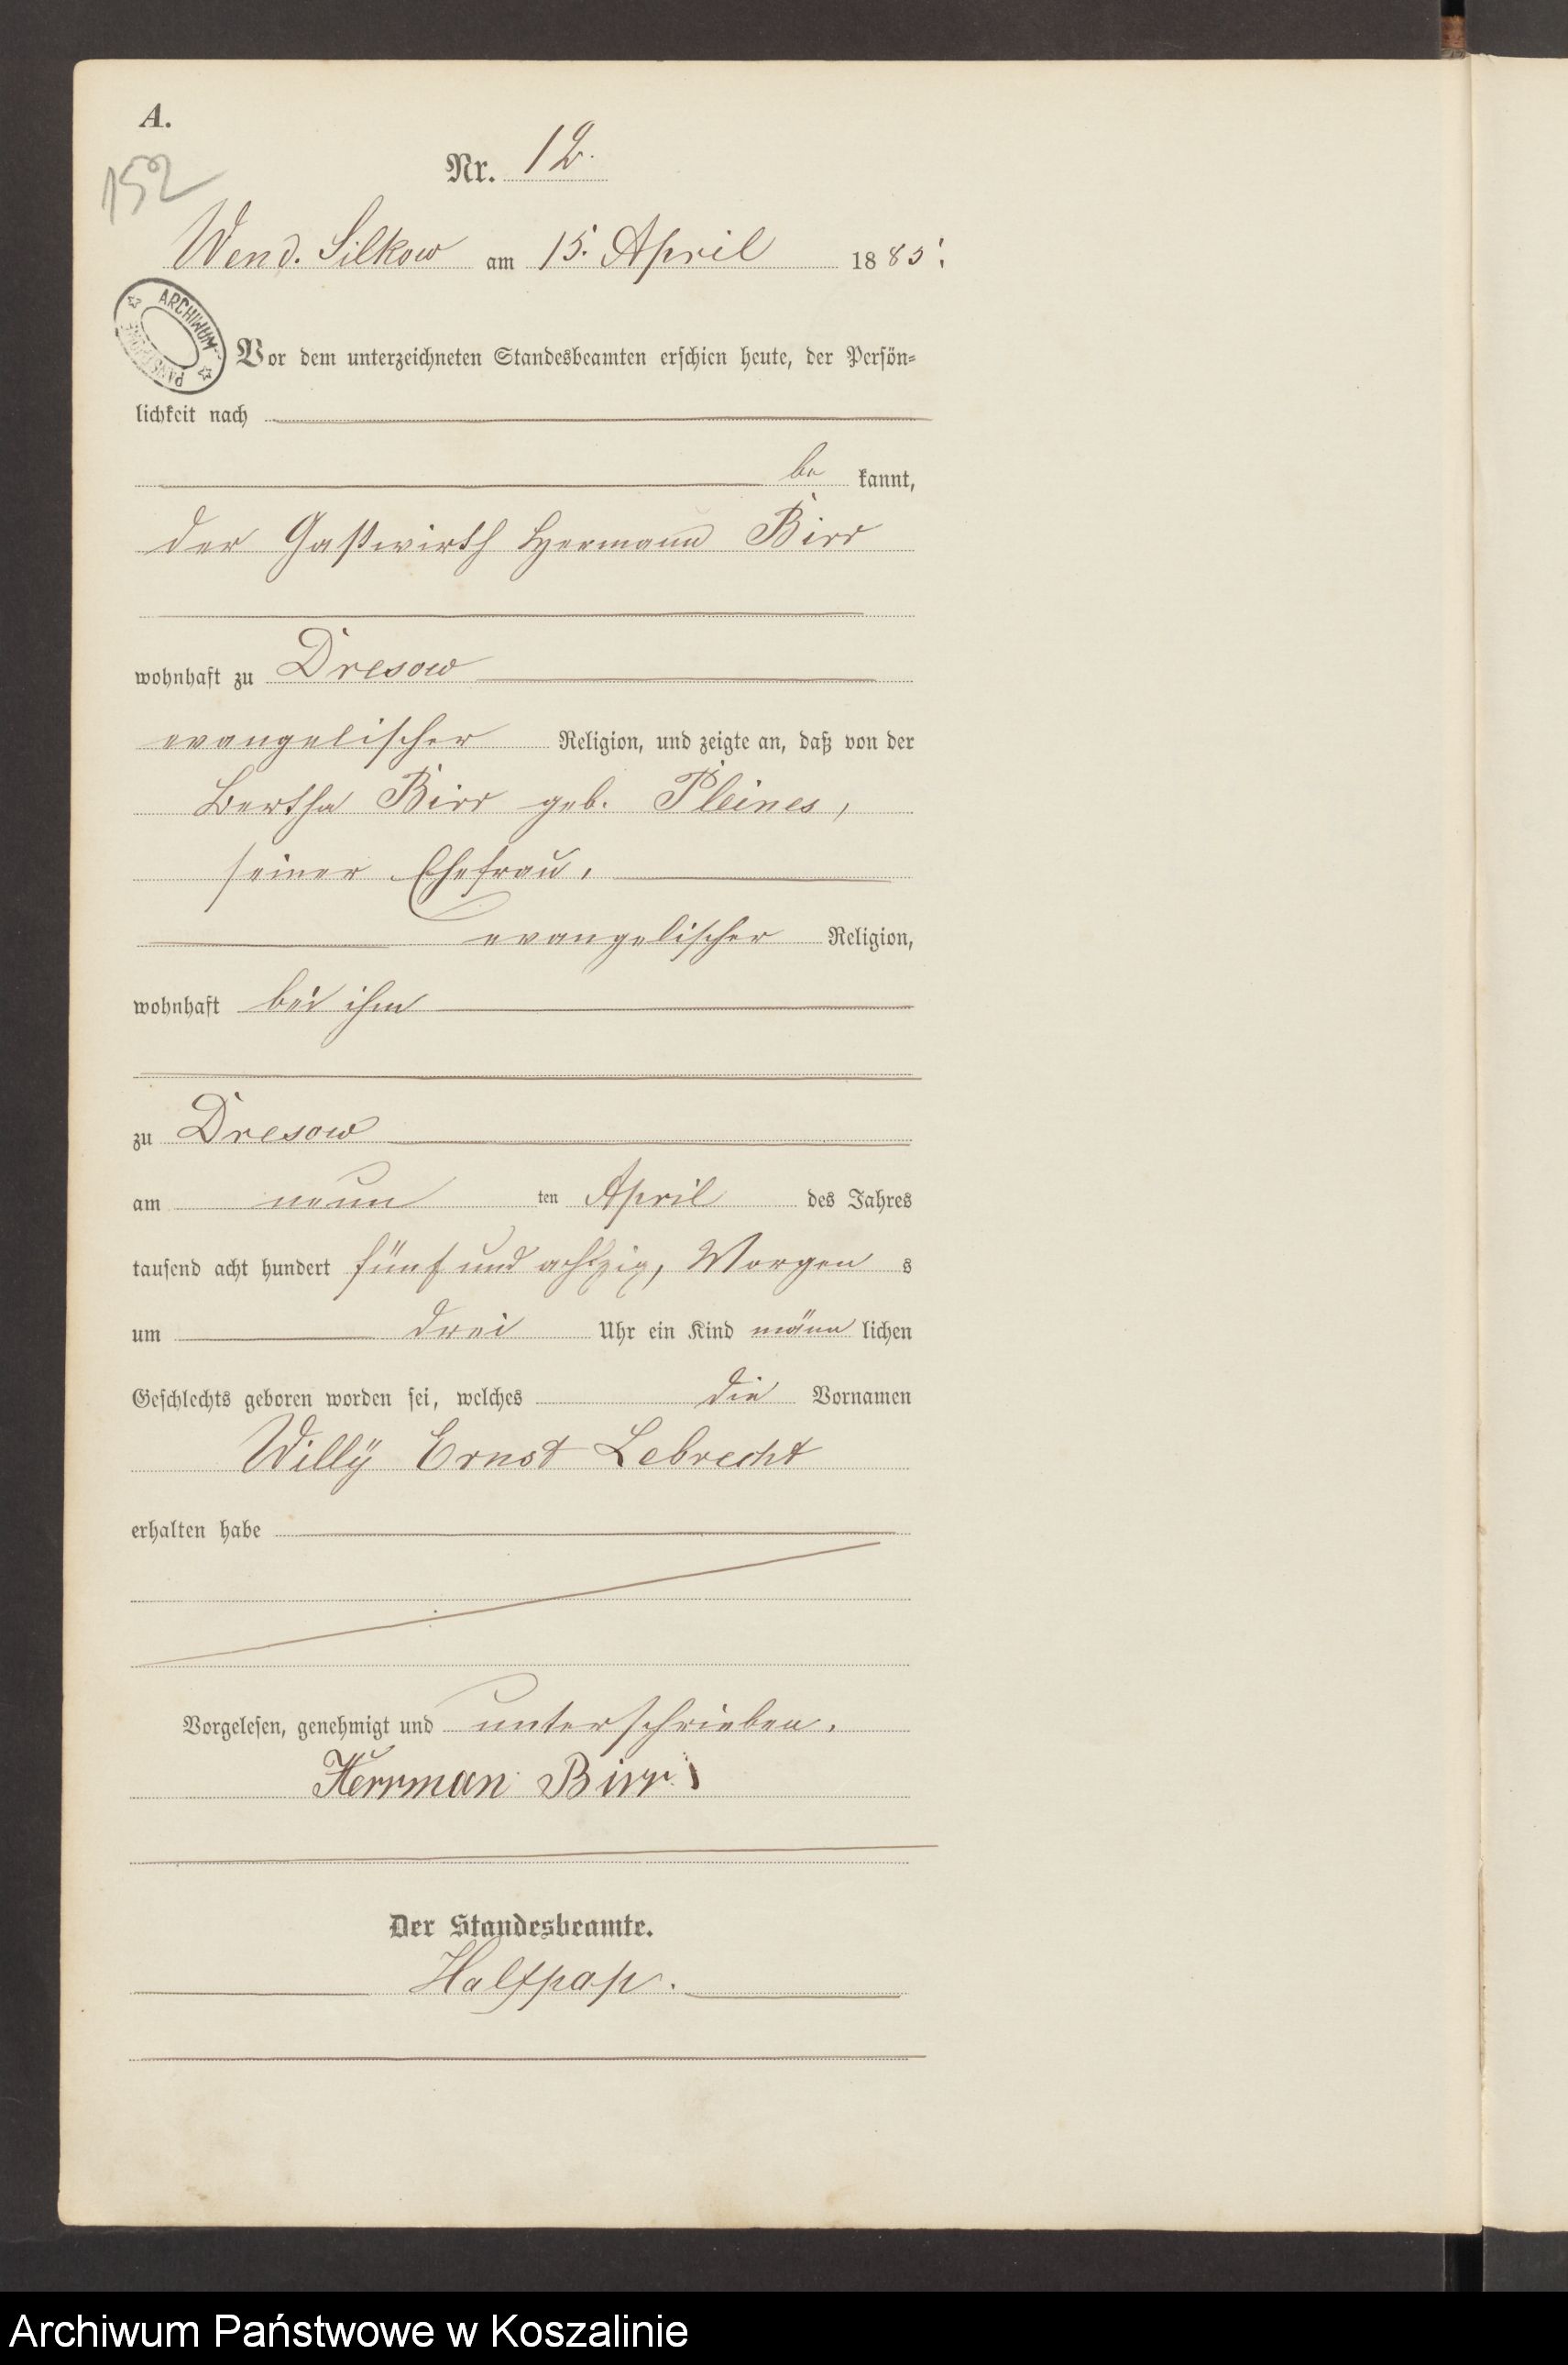 A.
152
Nr. 12.
Wend. Silkow am 15. April 1885.
ARCHIWUM PAŃSTWOWE
Vor dem unterzeichneten Standesbeamten erschien heute, der Persön-
lichkeit nach
be kannt,
der Gastwirth Hermann Birr
wohnhaft zu Dresow
evangelischer Religion, und zeigte an, daß von der
Bertha Birr geb. Pleines,
seiner Ehefrau,
evangelischer Religion,
wohnhaft bei ihm
zu Dresow
am neun ten April des Jahres
tausend acht hundert fünf und achtzig, Morgen s
um drei Uhr ein Kind männ lichen
Geschlechts geboren worden sei, welches die Vornamen
Willÿ Ernst Lebrecht
erhalten habe
Vorgelesen, genehmigt und unterschrieben.
Herrman Birr
Der Standesbeamte.
Halfpap.
Archiwum Państwowe w Koszalinie